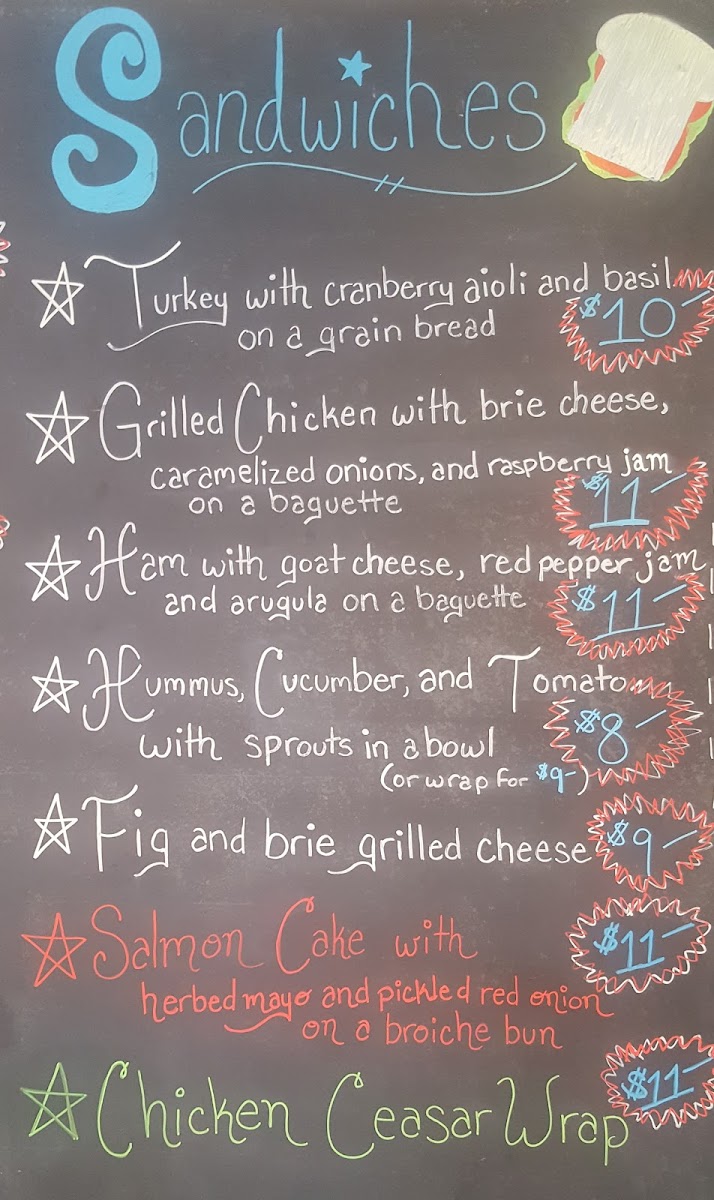 Sandwiches
Turkey with cranberry aioli and basil
on a grain bread
$10-
Grilled Chicken with brie cheese,
caramelized onions, and raspberry jam
on a baguette
$11-
Ham with goat cheese, red pepper jam
and arugula on a baguette
$11-
Hummus, Cucumber, and Tomato
with sprouts in a bowl
$8-
(or wrap for $9-)
Fig and brie grilled cheese
$9-
Salmon Cake with
$11-
herbed mayo and pickled red onion
on a broiche bun
Chicken Ceasar Wrap
$11-